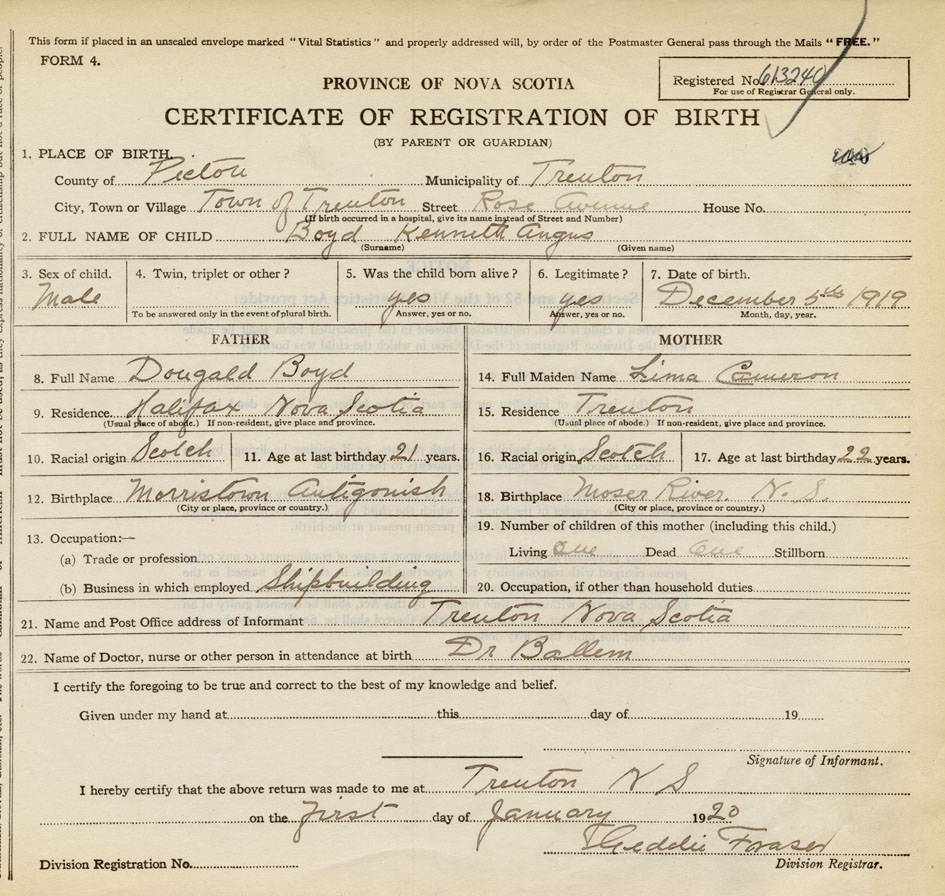 This form if placed in an unsealed envelope marked "Vital Statistics" and properly addressed will, by order of the Postmaster General pass through the Mails "FREE."
FORM 4.
Registered No. 613240
For use of Registrar General only.
PROVINCE OF NOVA SCOTIA
CERTIFICATE OF REGISTRATION OF BIRTH
(BY PARENT OR GUARDIAN)
1. PLACE OF BIRTH.
County of Pictou Municipality of Trenton
City, Town or Village Town of Trenton Street Rose Avenue House No.
(If birth occurred in a hospital, give its name instead of Street and Number)
2. FULL NAME OF CHILD Boyd Kenneth Angus
(Surname) (Given name)
3. Sex of child. 4. Twin, triplet or other? 5. Was the child born alive? 6. Legitimate? 7. Date of birth.
Male yes yes December 5th 1919
To be answered only in the event of plural birth. Answer, yes or no. Answer, yes or no. Month, day, year.
FATHER MOTHER
8. Full Name Dougald Boyd 14. Full Maiden Name Lima Cameron
9. Residence. Halifax Nova Scotia 15. Residence Trenton
(Usual place of abode.) If non-resident, give place and province. (Usual place of abode.) If non-resident, give place and province.
10. Racial origin Scotch 11. Age at last birthday 21 years. 16. Racial origin Scotch 17. Age at last birthday 22 years.
12. Birthplace Morristown Antigonish 18. Birthplace Moser River. N. S.
(City or place, province or country.) (City or place, province or country.)
13. Occupation:— 19. Number of children of this mother (including this child.)
(a) Trade or profession Living One Dead One Stillborn
(b) Business in which employed Shipbuilding 20. Occupation, if other than household duties
21. Name and Post Office address of Informant Trenton Nova Scotia
22. Name of Doctor, nurse or other person in attendance at birth Dr Ballem
I certify the foregoing to be true and correct to the best of my knowledge and belief.
Given under my hand at this day of 19
Signature of Informant.
I hereby certify that the above return was made to me at Trenton N S
on the First day of January 1920
Geddie Fraser
Division Registration No. Division Registrar.